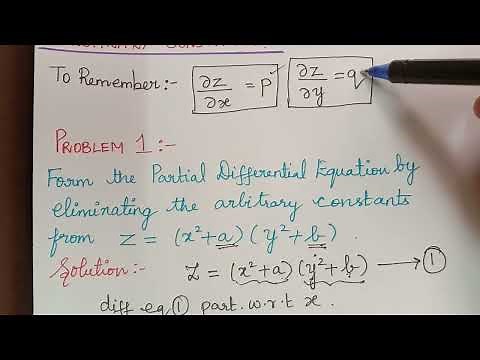 To Remember:- ∂z/∂x = p ∂z/∂y = q
PROBLEM 1:-
Form the Partial Differential Equation by
eliminating the arbitrary constants
from z = (x²+a)(y²+b).
Solution:- z = (x²+a)(y²+b) → ①
diff eq ① part. w.r.t x.